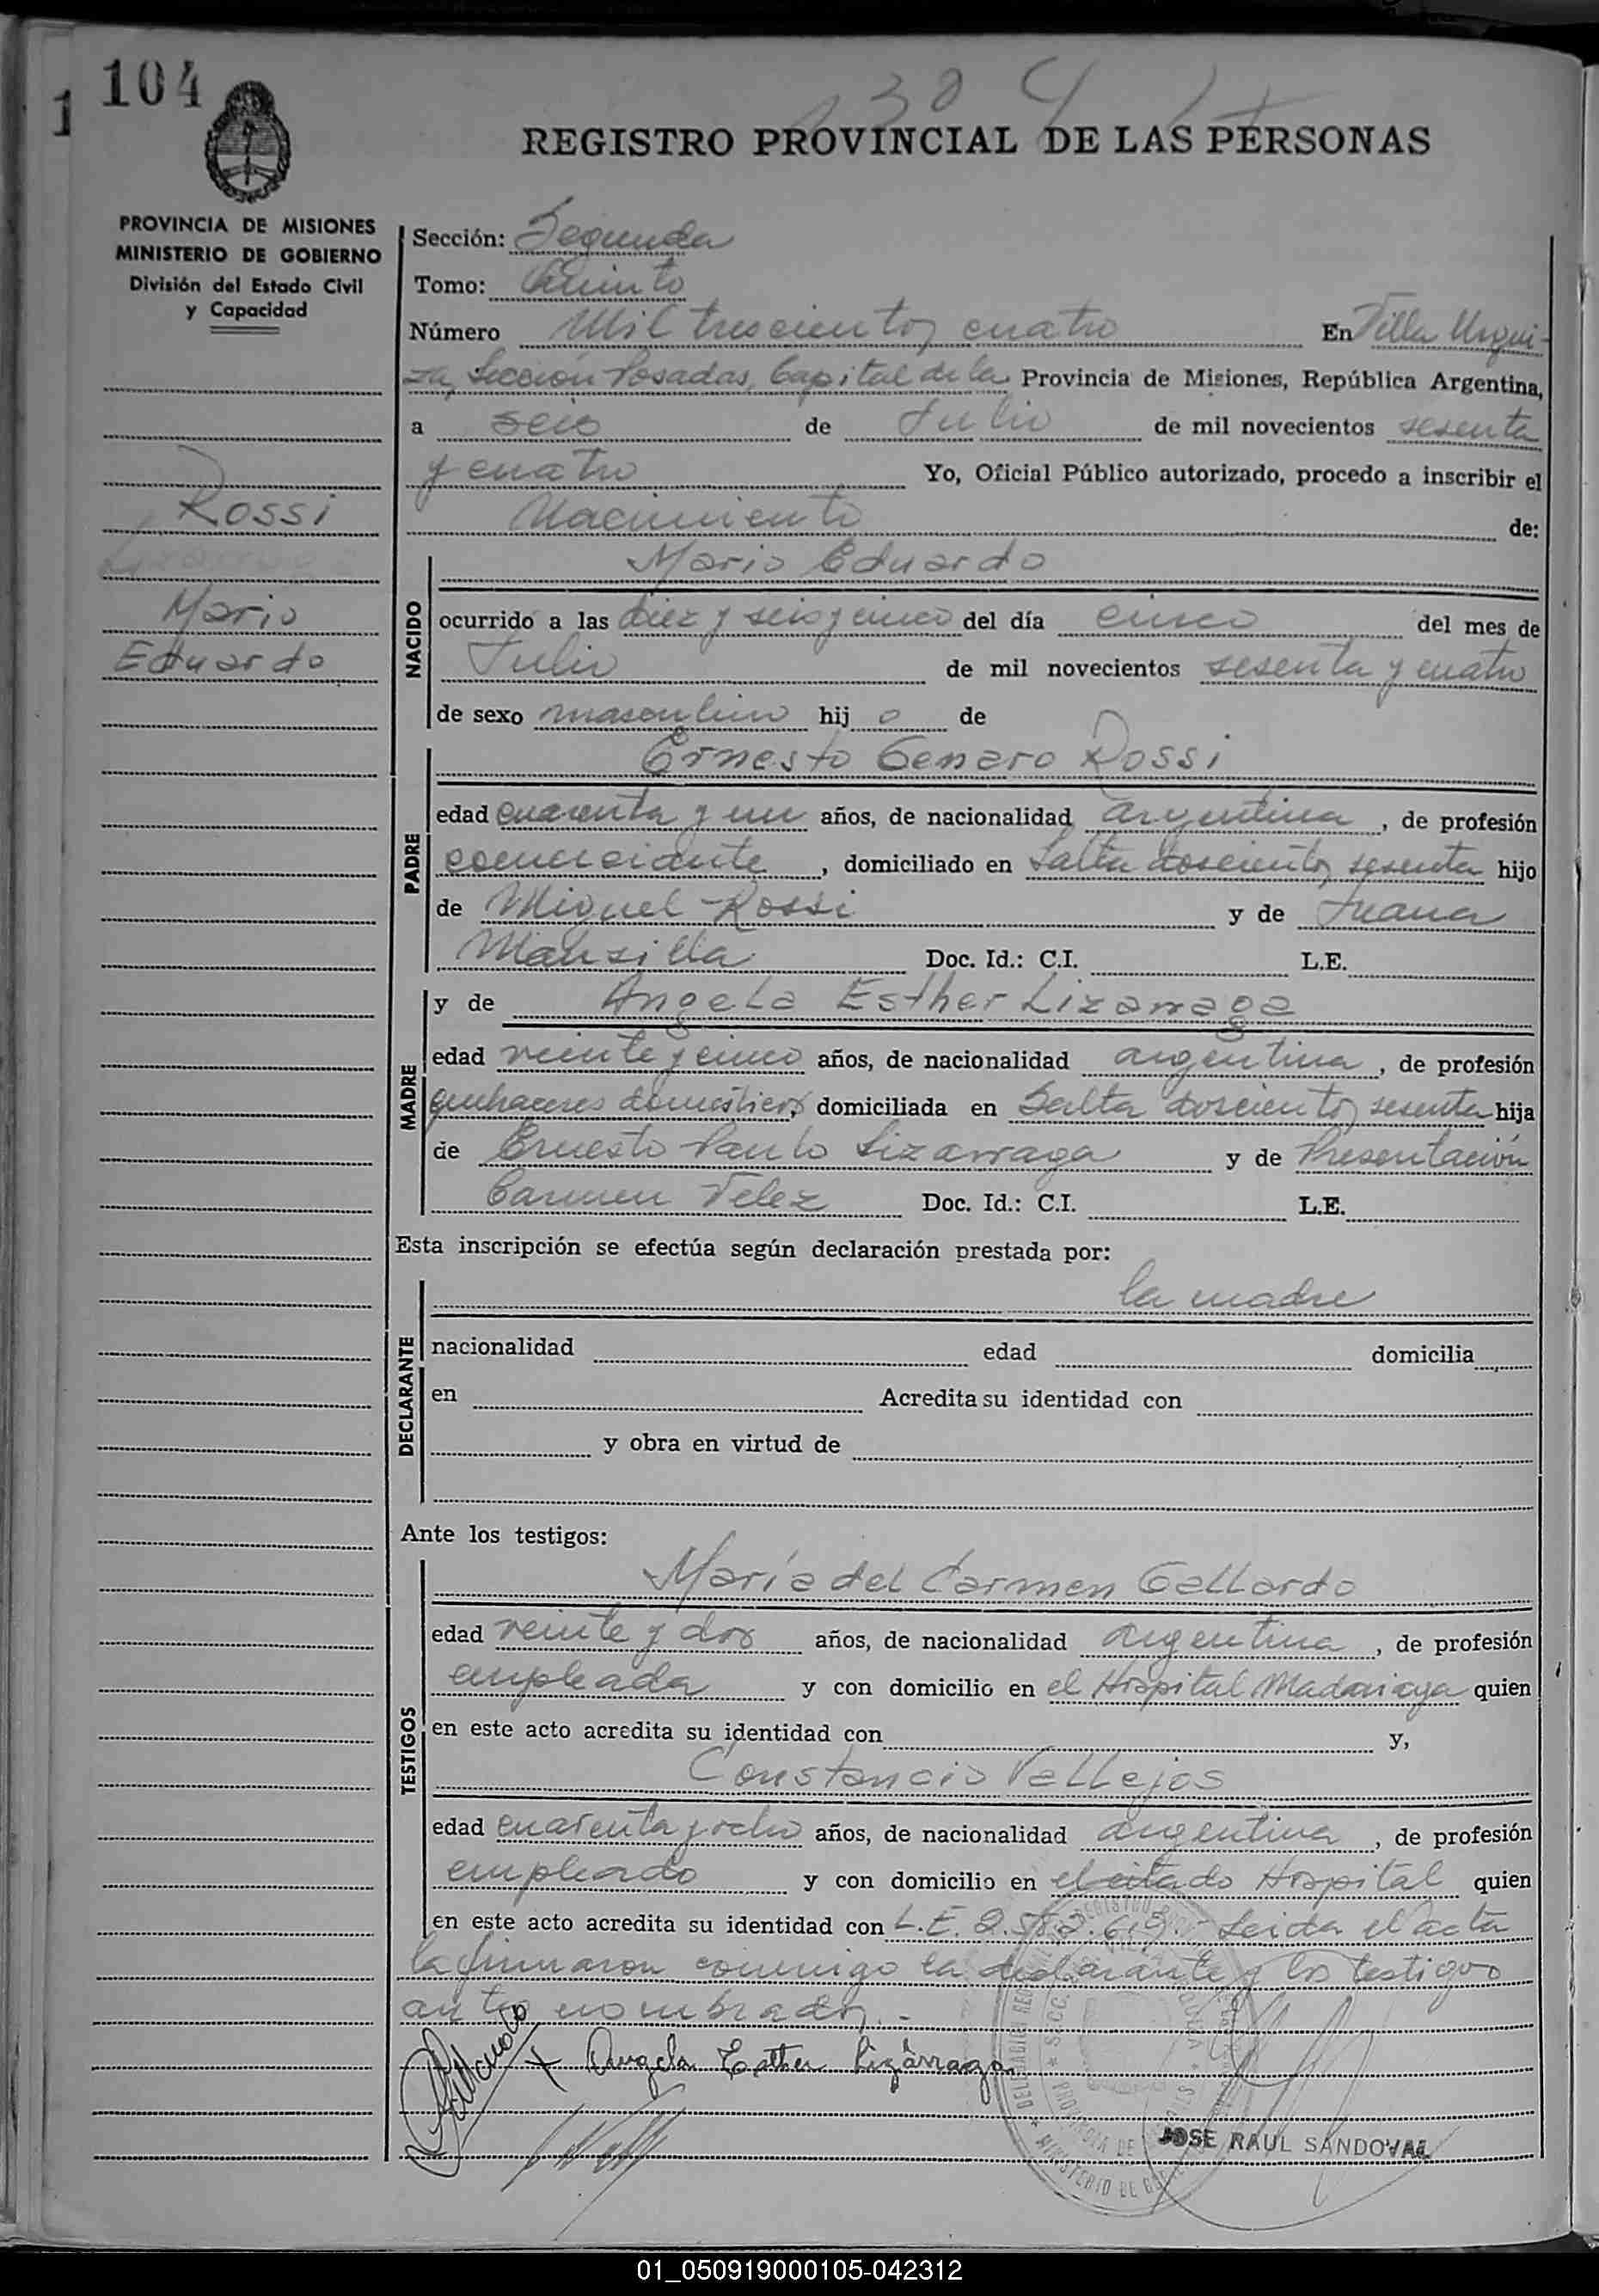 104
1
1304
REGISTRO PROVINCIAL DE LAS PERSONAS
PROVINCIA DE MISIONES
MINISTERIO DE GOBIERNO
División del Estado Civil
y Capacidad
Rossi
Mario
Eduardo
Sección: Segunda
Tomo: Quinto
Número Mil trescientos cuatro En Villa Urqui-
za, Sección Posadas, Capital de la Provincia de Misiones, República Argentina,
a seis de Julio de mil novecientos sesenta
y cuatro Yo, Oficial Público autorizado, procedo a inscribir el
Nacimiento de:
NACIDO
Mario Eduardo
ocurrido a las diez y seis y cinco del día cinco del mes de
Julio de mil novecientos sesenta y cuatro
de sexo masculino hij o de
PADRE
Ernesto Genaro Rossi
edad cuarenta y un años, de nacionalidad argentina, de profesión
comerciante, domiciliado en Salta doscientos sesenta hijo
de Miguel Rossi y de Juana
Mansilla Doc. Id.: C.I. L.E.
MADRE
y de Angela Esther Lizarraga
edad veinte y cinco años, de nacionalidad argentina, de profesión
quehaceres domésticos, domiciliada en Salta doscientos sesenta hija
de Ernesto Paulo Lizarraga y de Presentación
Carmen Velez Doc. Id.: C.I. L.E.
Esta inscripción se efectúa según declaración prestada por:
DECLARANTE
la madre
nacionalidad edad domicilia
en Acredita su identidad con
y obra en virtud de
Ante los testigos:
TESTIGOS
María del Carmen Gallardo
edad veinte y dos años, de nacionalidad argentina, de profesión
empleada y con domicilio en el Hospital Madariaga quien
en este acto acredita su identidad con y,
Constancio Vallejos
edad cuarenta y ocho años, de nacionalidad argentina, de profesión
empleado y con domicilio en el citado Hospital quien
en este acto acredita su identidad con L.E. Leida el acta
la firmaron conmigo la declarante y los testigos
antes nombrados.-
x Angela Esther Lizárraga
JOSE RAUL SANDOVAL
01_050919000105-042312